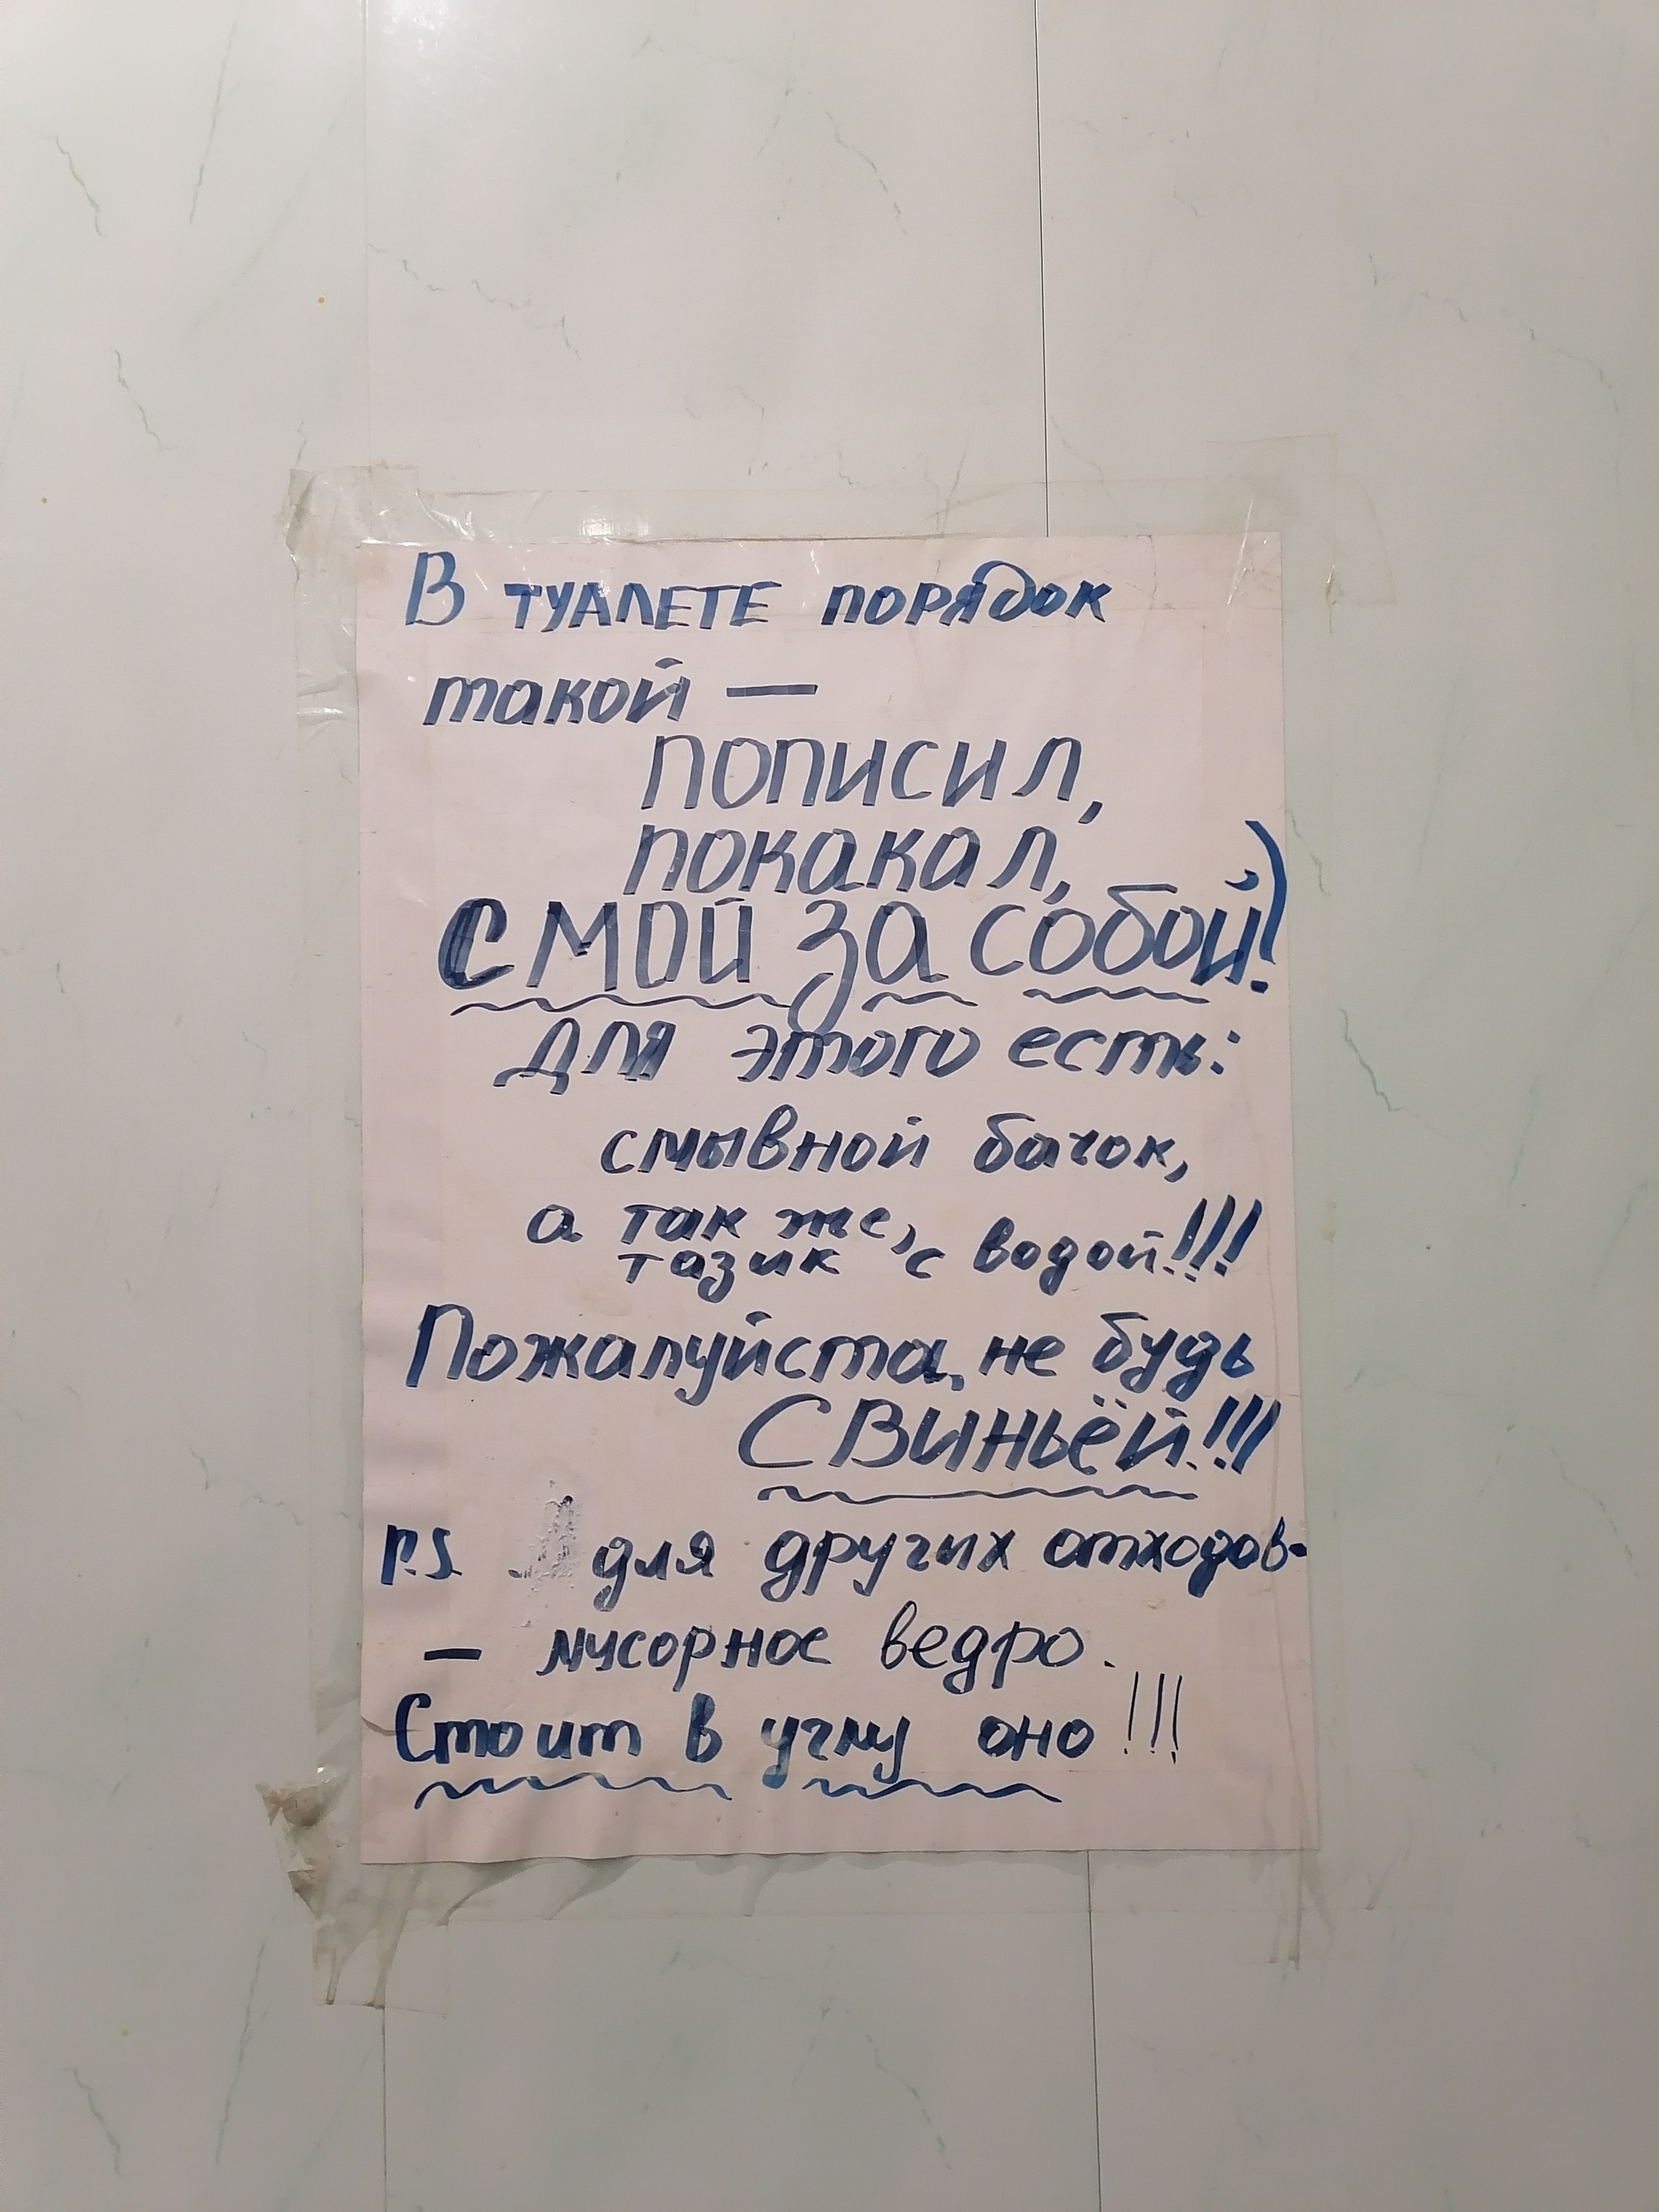 В ТУАЛЕТЕ ПОРЯДОК
такой —
ПОПИСИЛ,
ПОКАКАЛ,
СМОЙ ЗА СОБОЙ!
ДЛЯ ЭТОГО есть:
смывной бачок,
а так же,
тазик с водой!!!
Пожалуйста, не будь
СВИНЬЁЙ!!!
P.S. для других отходов-
— мусорное ведро.
Стоит в углу оно!!!